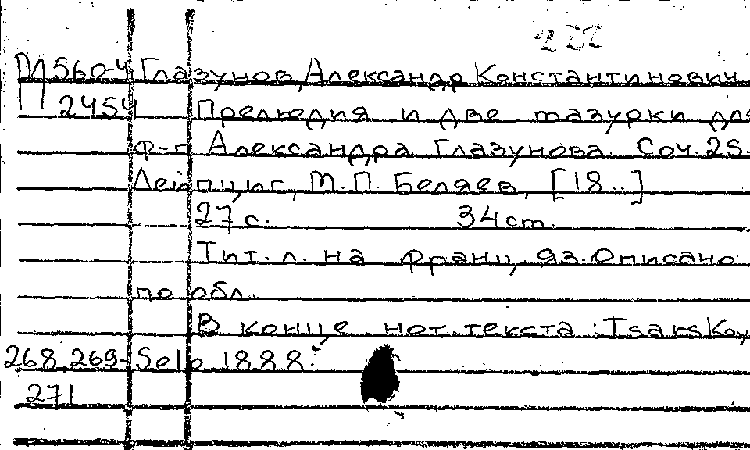 222
П560-4 Глазунов, Александр Константинович.
П 2454 Прелюдия и две мазурки для
ф-п Александра Глазунова. Соч. 25.
Лейпциг, М.П. Беляев, [18..]
27 с. 34 cm.
Тит. л. на франц. яз. Описано
по обл.
В конце нот. текста: Tsarskoy
268,269- Selo 1888.
271